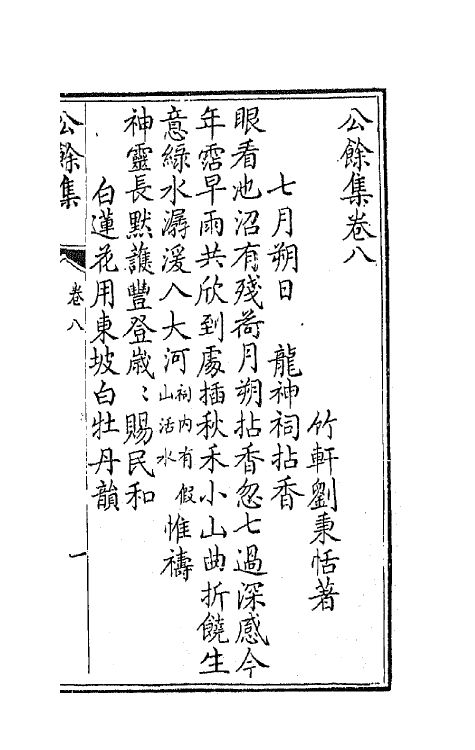 公餘集卷八
竹軒劉秉恬著
七月朔日 龍神祠拈香
眼看池沼有殘荷月朔拈香忽七過深感今
年霑早雨共欣到處插秋禾小山曲折饒生
意綠水潺湲入大河祠内有假山活水惟禱
神靈長默護豐登歲〻賜民和
白蓮花用東坡白牡丹韻
公餘集
卷八
一